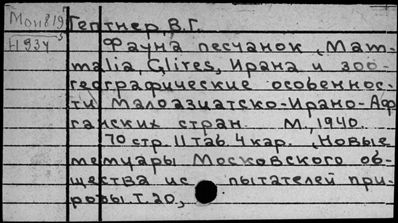 Мои819
Гептнер, В.Г.
Н934
Фауна песчанок (Mam-
malia, Glires, Ирана и зоо-
географические особеннос-
ти Малоазиатско-Ирано-Аф-
ганских стран. М., 1940.
70 стр. 11 таб. 4 кар. (Новые
мемуары Московского об-
щества ис пытателей при-
роды. Т. 20,